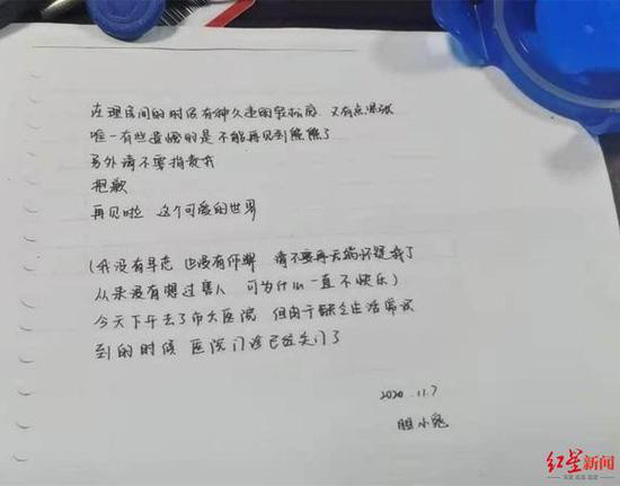 在理房间的时候有种久违的轻松感 又有点紧张
唯一有些遗憾的是不能再见到熊熊了
另外请不要指责我
抱歉
再见啦 这个可爱的世界
(我没有早恋 也没有 请不要再无端怀疑我了
从来没有想过害人 可为什么一直不快乐)
今天下午去了市大医院 但由于缺乏生活常识
到的时候 医院门诊已经关门了
2020.11.7
胆小鬼
红星新闻